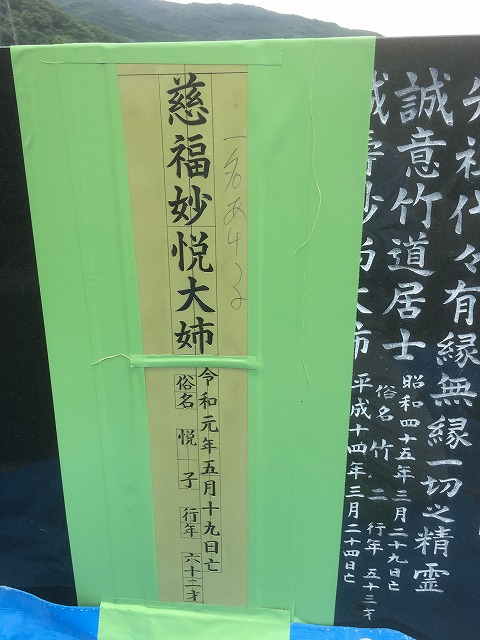 先祖代々有縁無縁一切之精霊
誠意竹道居士
昭和四十五年三月二十九日亡
俗名竹二 行年五十三才
平成十四年三月二十四日亡
一名あける
慈福妙悦大姉
令和元年五月十九日亡
俗名 悦子 行年 六十二才